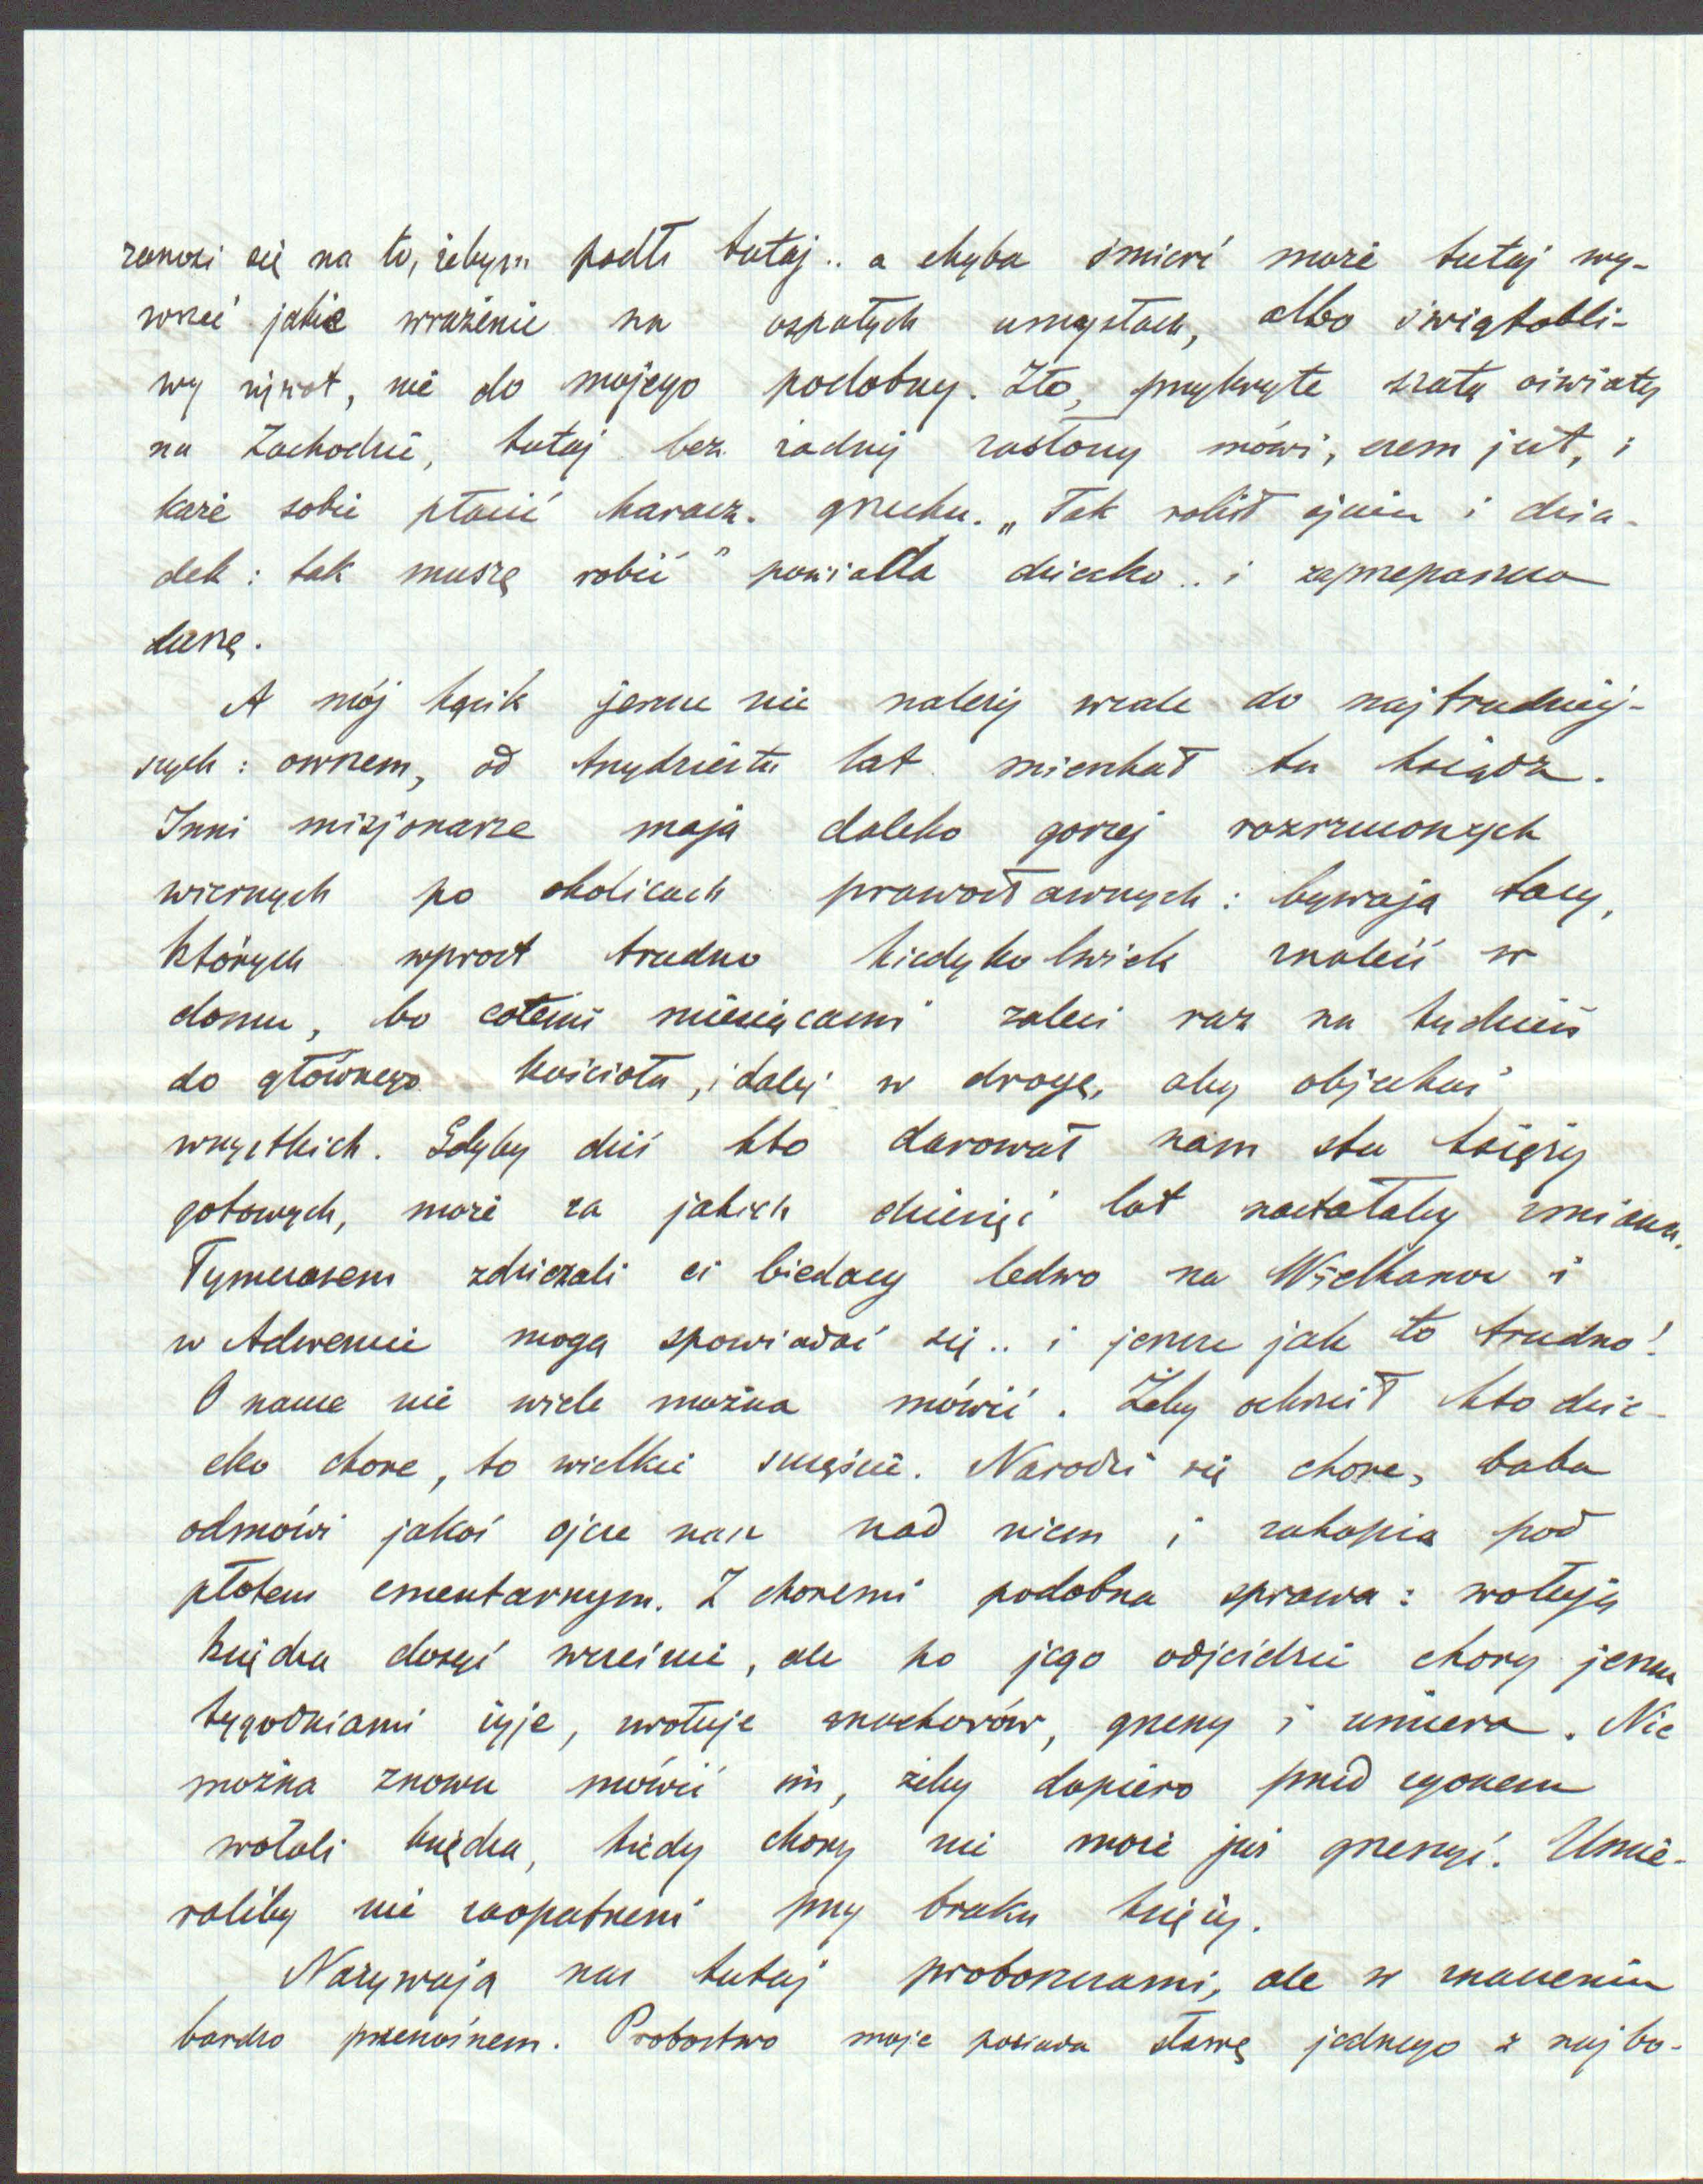 zanosi się na to, żebym padł tutaj .. a chyba śmierć może tutaj wy-
wrzeć jakie wrażenie na ospałych umysłach, albo świątobli-
wy żywot, nie do mojego podobny. Zło, przykryte szatą oświaty
na Zachodzie, tutaj bez żadnej zasłony mówi, czem jest, i
każe sobie płacić haracz grzechu. „Tak robił ojciec i dzia-
dek : tak muszę robić" powiada dziecko .. i zaprzepaszcza
duszę.
A mój kącik jeszcze nie należy wcale do najtrudniej-
szych : owszem, od trzydziestu lat mieszkał tu ksiądz.
Inni misjonarze mają daleko gorzej rozrzuconych
wiernych po okolicach prawosławnych : bywają tacy,
których wprost trudno kiedykolwiek znaleść w
domu, bo całemi miesiącami zaleci raz na tydzień
do głównego kościoła, i dalej w drogę, aby objechać
wszystkich. Gdyby dziś kto darował nam stu księży
gotowych, może za jakich dziesięć lat nastałaby zmiana.
Tymczasem zdziczali ci biedacy ledwo na Wielkanoc i
w Adwencie mogą spowiadać się .. i jeszcze jak to trudno!
O nauce nie wiele można mówić. Żeby ochrzcił kto dzie-
cko chore, to wielkie szczęście. Narodzi się chore, baba
odmówi jakoś ojcze nasz nad niem i zakopią pod
płotem cmentarnym. Z choremi podobna sprawa : wołają
księdza dosyć wcześnie, ale po jego odjeździe chory jeszcze
tygodniami żyje, zwołuje znachorów, grzeszy i umiera. Nie
można znowu mówić im, żeby dopiero przed zgonem
wołali księdza, kiedy chory nie może już grzeszyć. Umie-
raliby nie zaopatrzeni przy braku księży.
Nazywają nas tutaj proboszczami, ale w znaczeniu
bardzo przenośnem. Probostwo moje posiada sławę jednego z najbo-